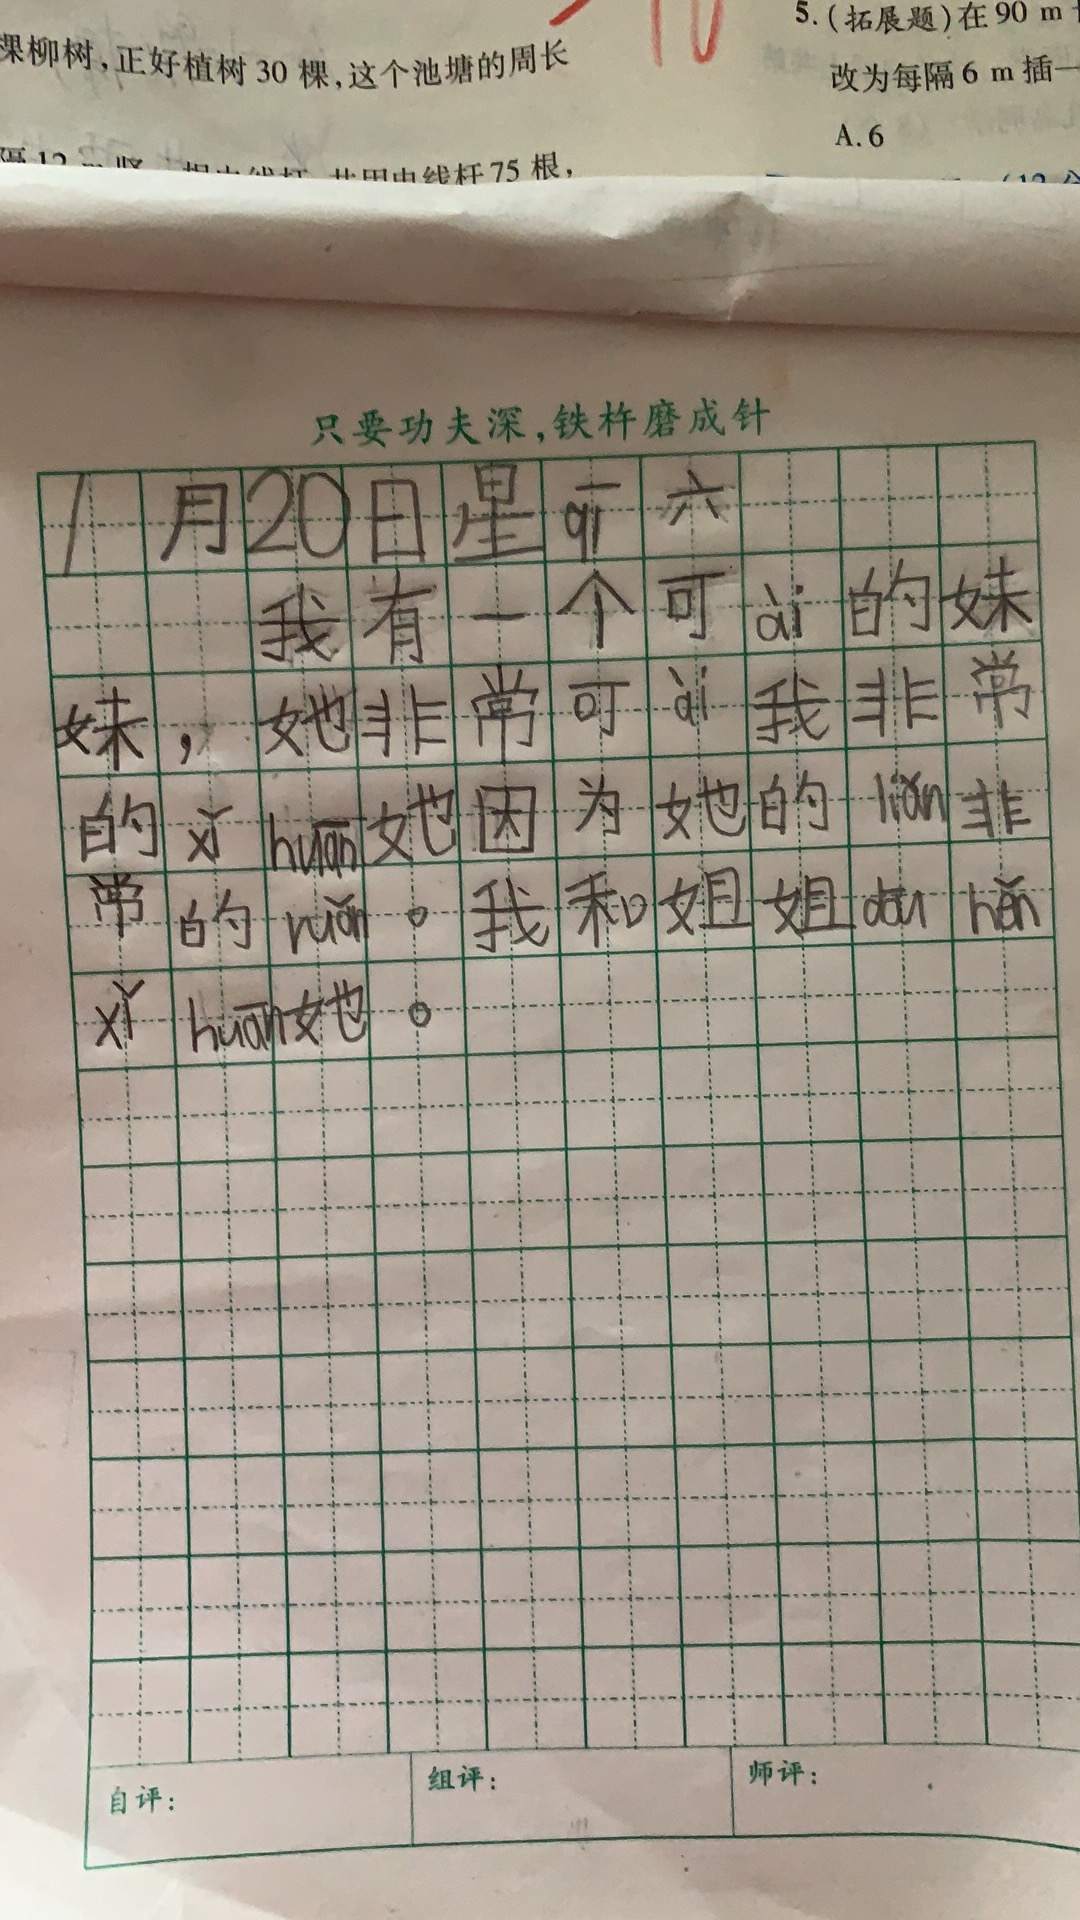 棵柳树,正好植树30棵,这个池塘的周长
隔12 m竖一根电线杆,共用电线杆75根,
5.(拓展题)在90 m
改为每隔6 m插一
A.6
(12分
只要功夫深,铁杵磨成针
1月20日星qī六
我有一个可ài的妹
妹，她非常可ài我非常
的xǐ huān她因为她的liǎn非
常的ruǎn。我和姐姐dōu hěn
xǐ huān她。
自评:
组评:
师评: